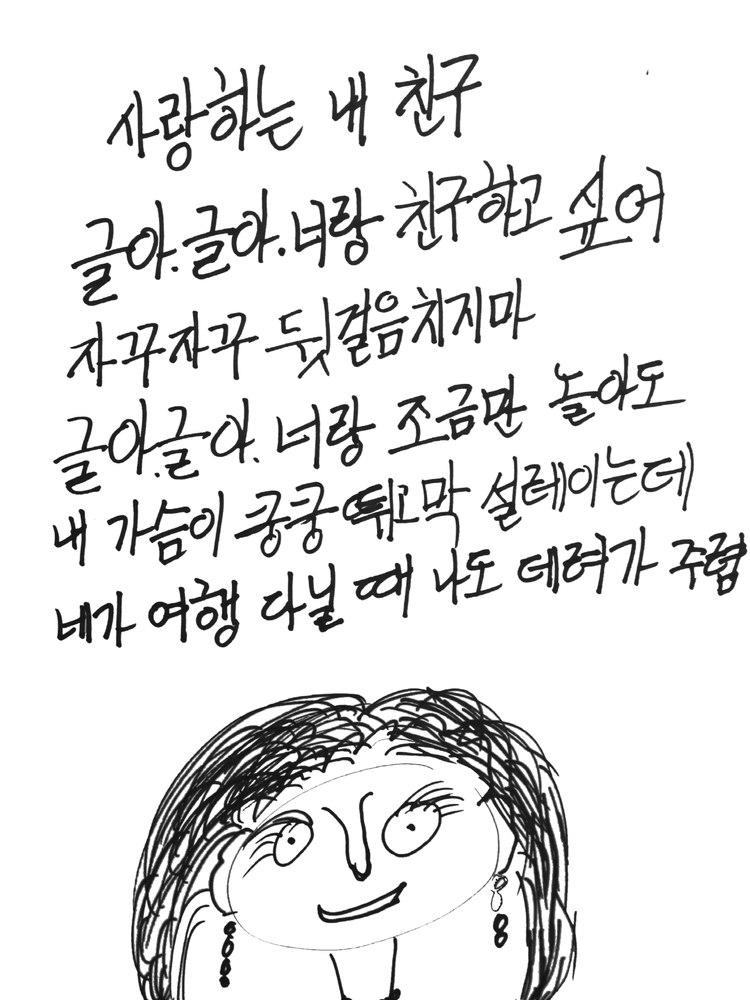 사랑하는 내 친구
글아.글아.너랑 친구하고 싶어
자꾸자꾸 뒷걸음치지마
글아.글아. 너랑 조금만 놀아도
내 가슴이 쿵쿵 뛰고막 설레이는데
네가 여행 다닐 때 나도 데려가 주렴